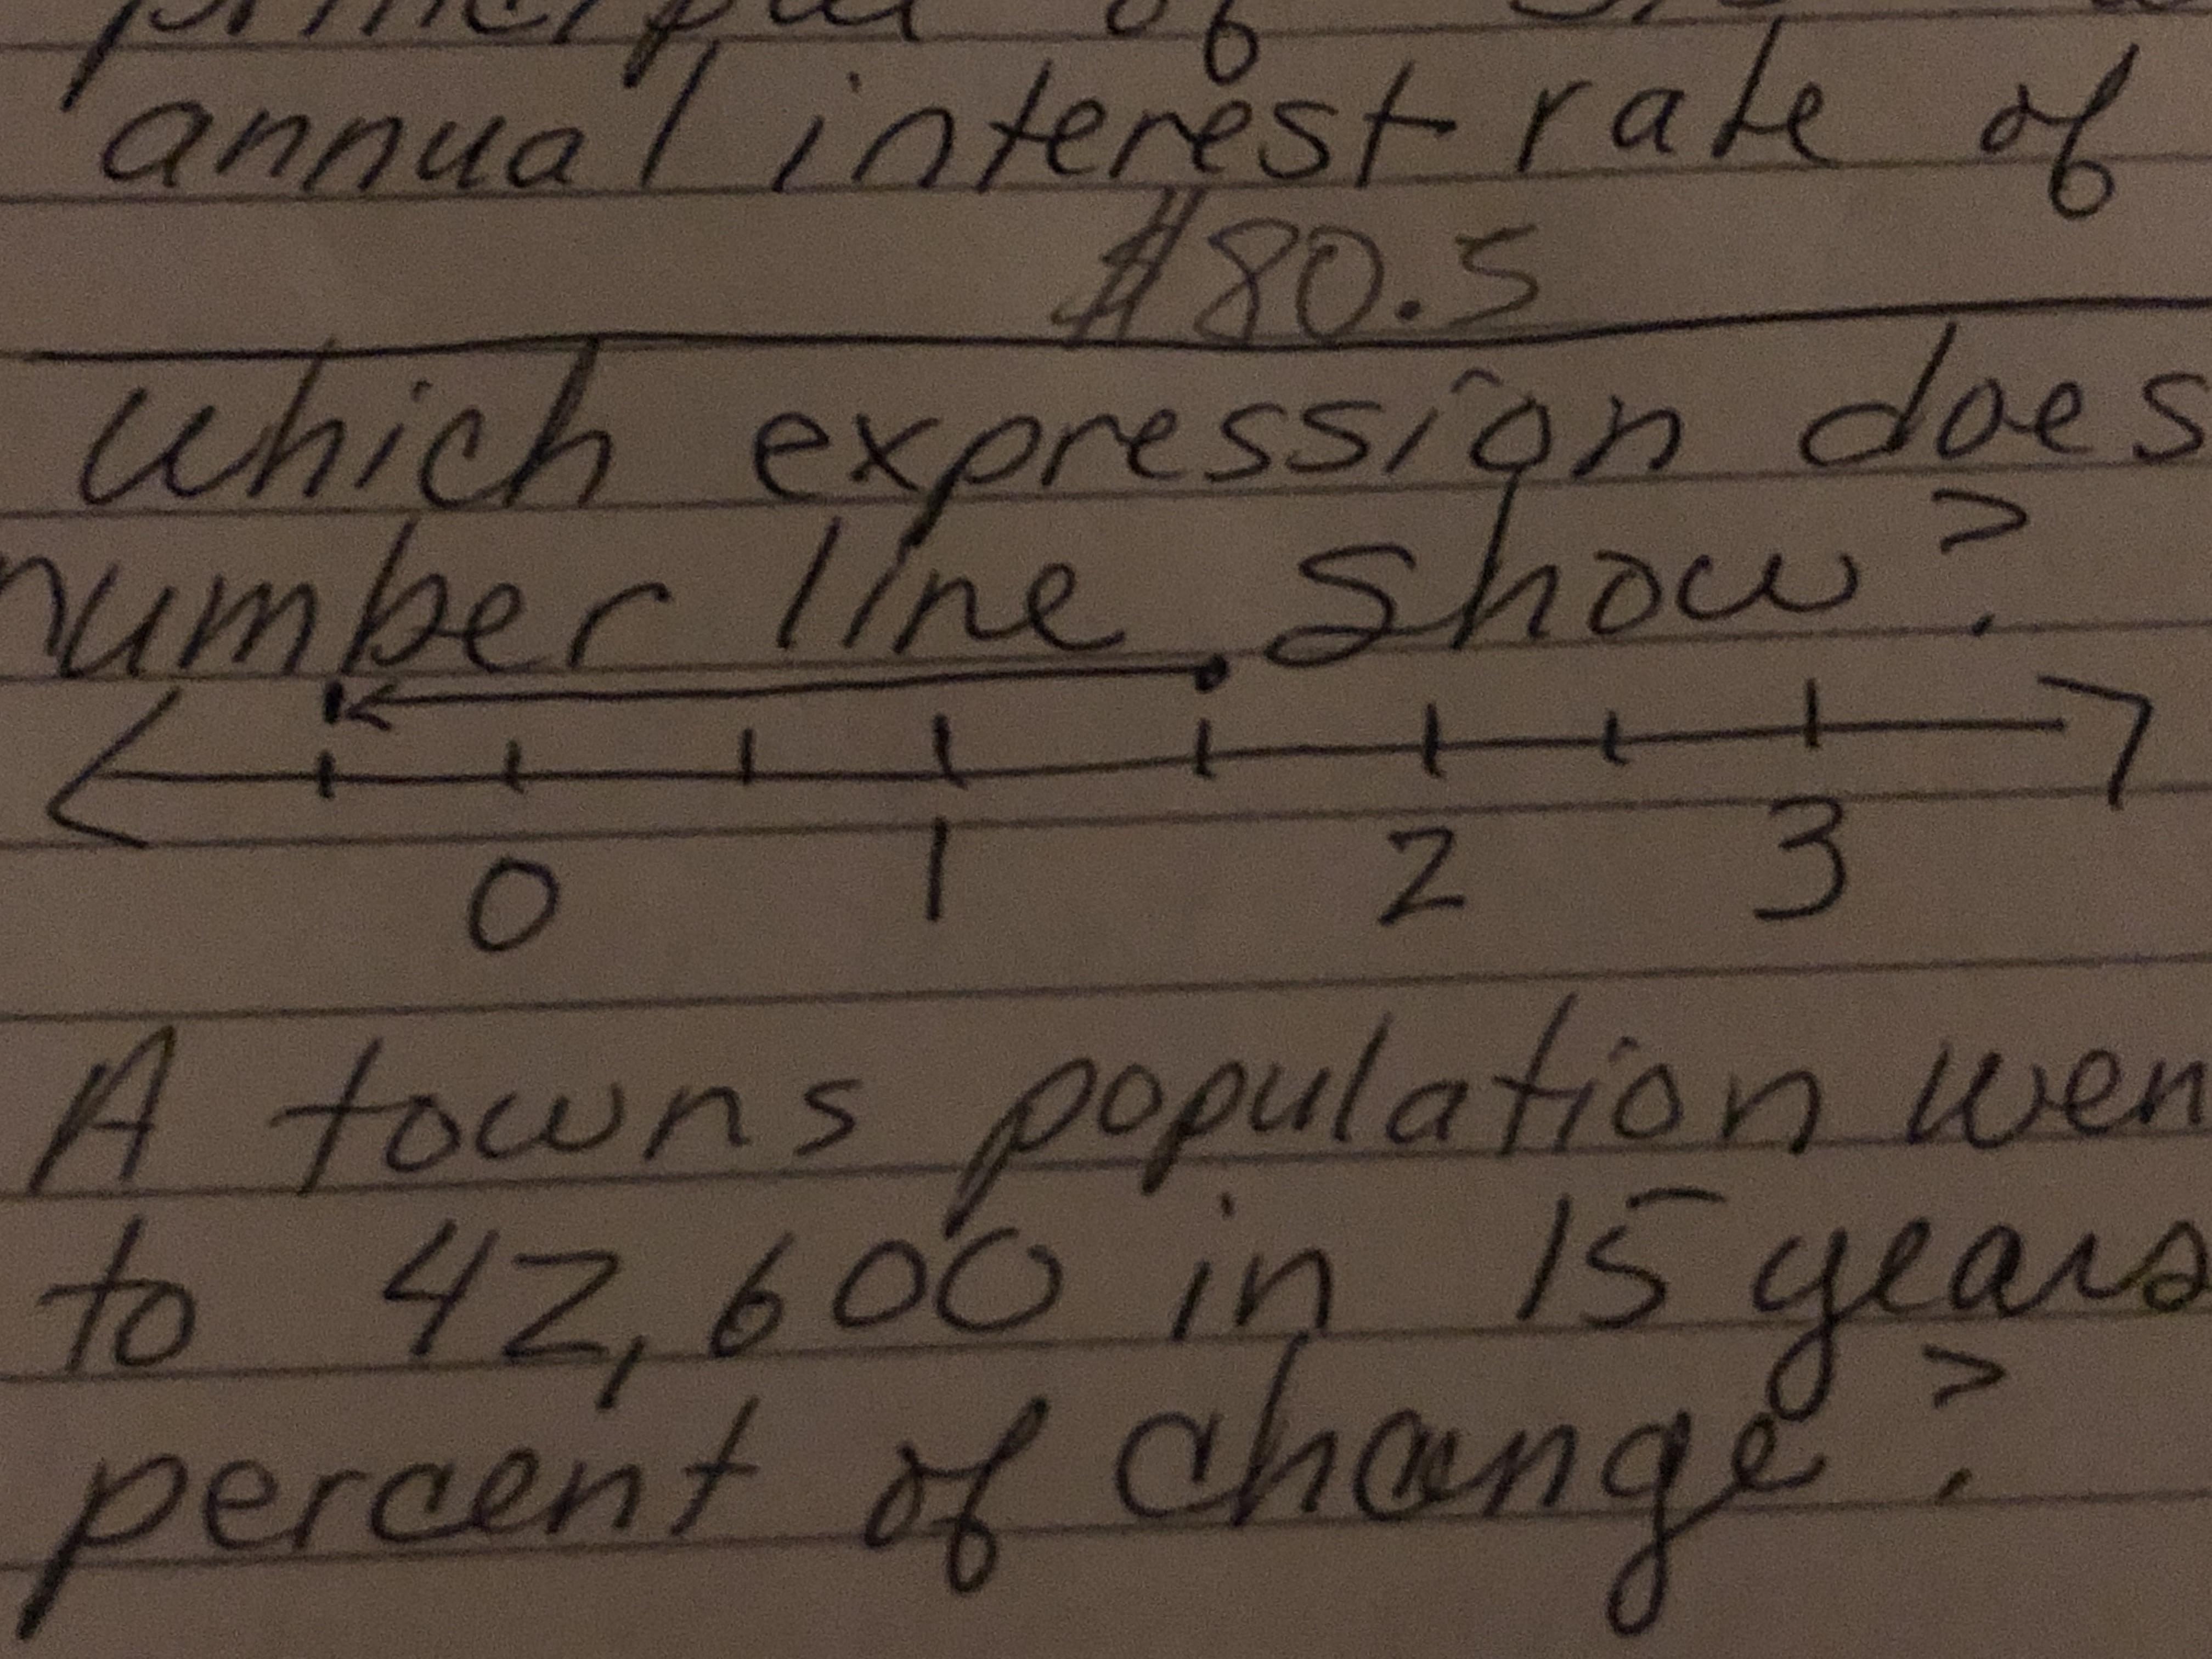 principal of
annual interest rate of
$80.5
which expression does
number line show?
0 1 2 3
A towns population wen
to 42,600 in 15 years
percent of change?